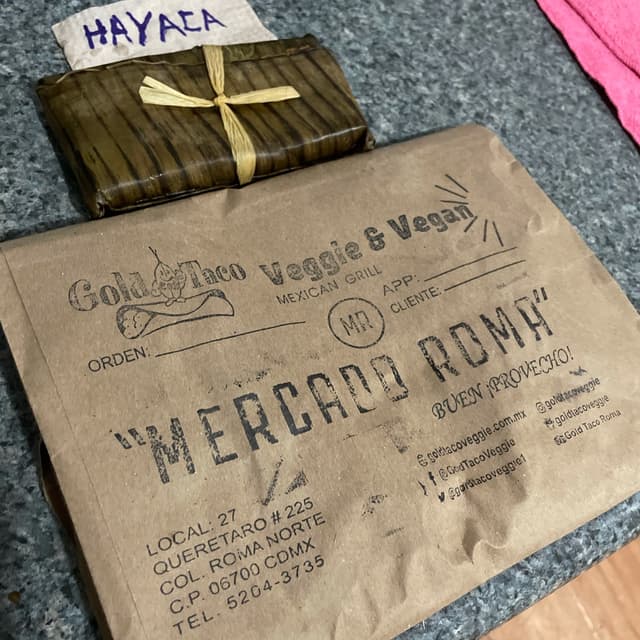 HAYACA
Gold Taco Veggie & Vegan
MEXICAN GRILL
APP:
ORDEN:
MR
CLIENTE:
"MERCADO ROMA"
BUEN ¡PROVECHO!
goldtacoveggie.com.mx
@GoldTacoVeggie
@goldtacoveggie1
@goldtacoveggie
@goldtacoveggie
Gold Taco Roma
LOCAL. 27
QUERETARO # 225
COL. ROMA NORTE
C.P. 06700 CDMX
TEL- 5204-3735